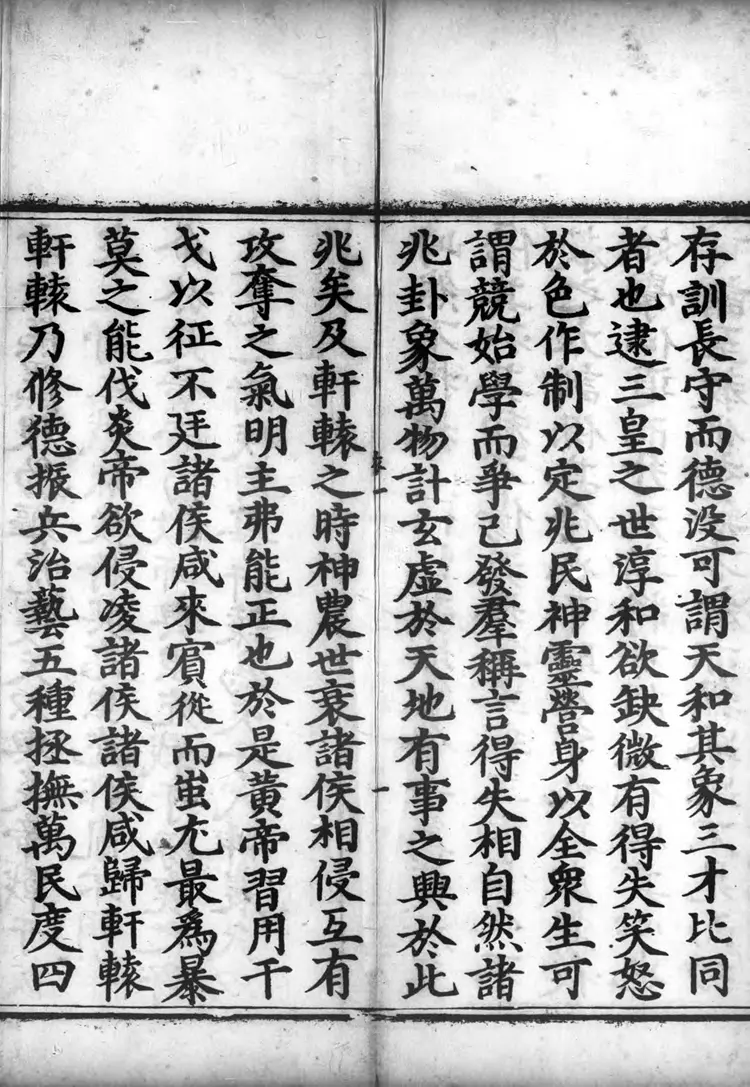 存訓長守而德没可謂天和其象三才比同
者也逮三皇之世淳和欲缺微有得失笑怒
於色作制以定兆民神靈營身以全衆生可
謂競始學而爭己發羣稱言得失相自然諸
兆卦象萬物計玄虛於天地有事之興於此
兆矣及軒轅之時神農世衰諸侯相侵互有
攻奪之氣明主弗能正也於是黄帝習用干
戈以征不廷諸侯咸來賓從而蚩尤最爲暴
莫之能伐炎帝欲侵凌諸侯諸侯咸歸軒轅
軒轅乃修德振兵治藝五種拯撫萬民度四